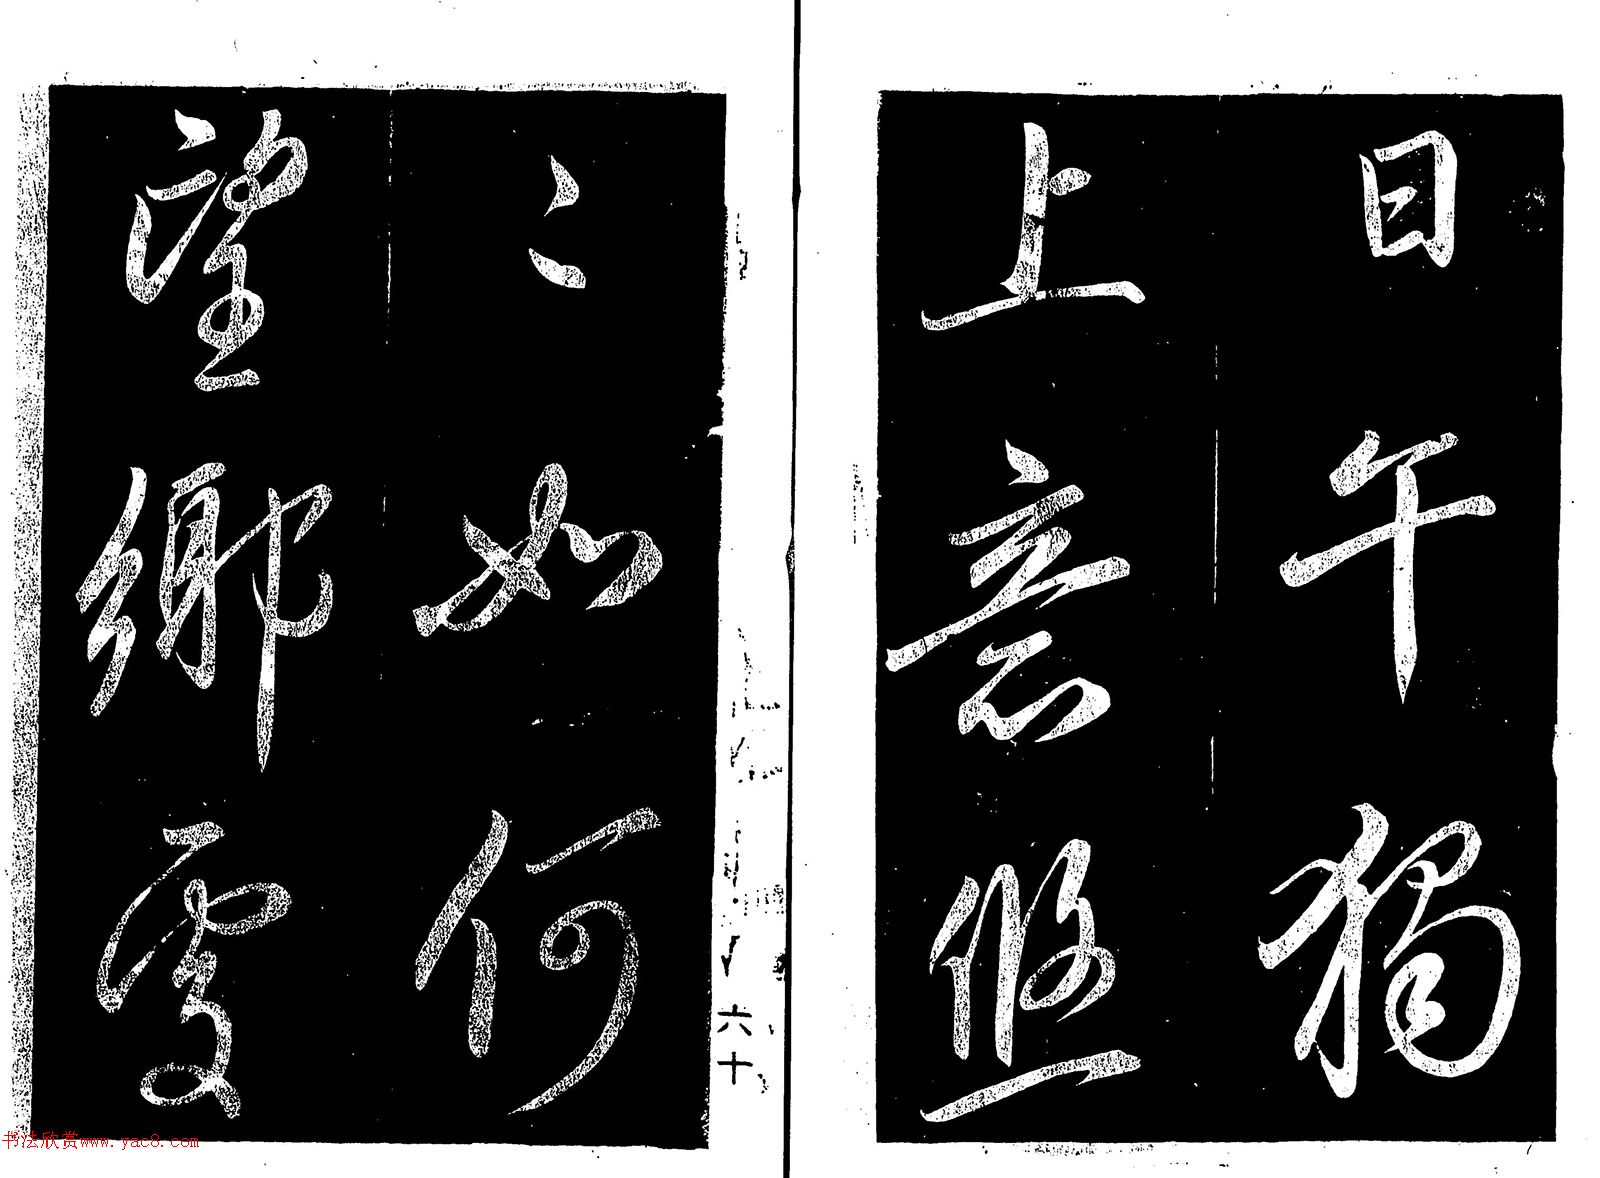 日午獨
上意悠
〻如何
望鄉處
六十
书法欣赏www.yac8.com